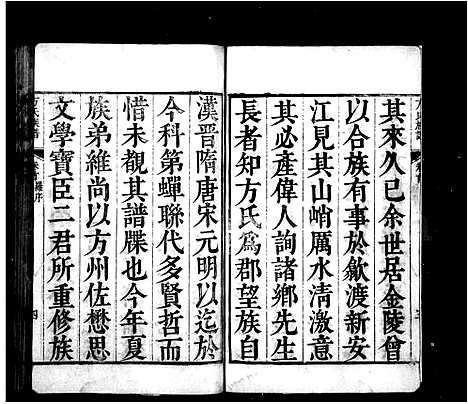 其來久已余世居金陵曾
以合族有事於歙渡新安
江見其山峭厲水清激意
其必產偉人詢諸鄉先生
長者知方氏爲郡望族自
漢晉隋唐宋元明以迄於
今科第蟬聯代多賢哲而
惜未覩其譜牒也今年夏
族弟維尚以方州佐懋思
文學寶臣二君所重修族
方氏族譜
序
四